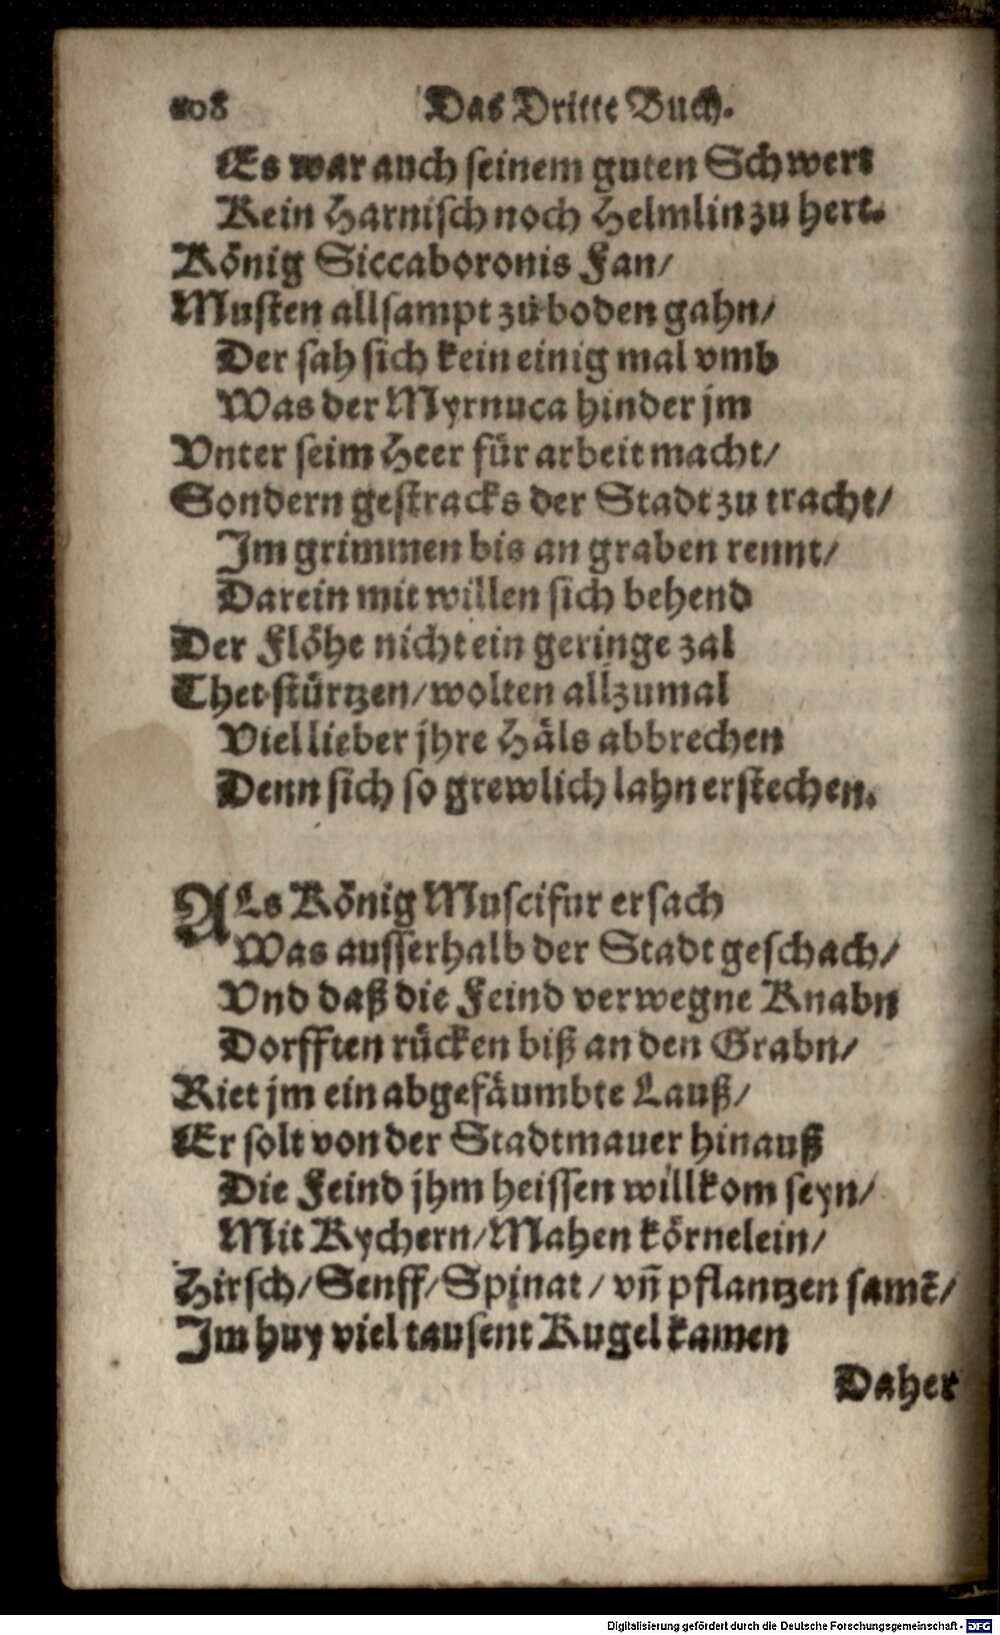 108 Das Dritte Buch.
Es war auch seinem guten Schwert
Kein Harnisch noch Helmlin zu hert.
König Siccaboronis Fan/
Musten allsampt zu boden gahn/
Der sah sich kein einig mal vmb
Was der Myrnuca hinder jm
Vnter seim Heer für arbeit macht/
Sondern gestracks der Stadt zu tracht/
Im grimmen bis an graben rennt/
Darein mit willen sich behend
Der Flöhe nicht ein geringe zal
Thet stürtzen/ wolten allzumal
Viel lieber jhre Häls abbrechen
Denn sich so grewlich lahn erstechen.
ALs König Muscifur ersach
Was ausserhalb der Stadt geschach/
Vnd daß die Feind verwegne Knabn
Dorfften rücken biß an den Grabn/
Riet jm ein abgefäumbte Lauß/
Er solt von der Stadtmauer hinauß
Die Feind jhm heissen willkom seyn/
Mit Kychern/ Mahen körnelein/
Hirsch/ Senff/ Spinat/ vñ pflantzen samē/
Im huy viel tausent Kugel kamen
Daher
Digitalisierung gefördert durch die Deutsche Forschungsgemeinschaft - DFG